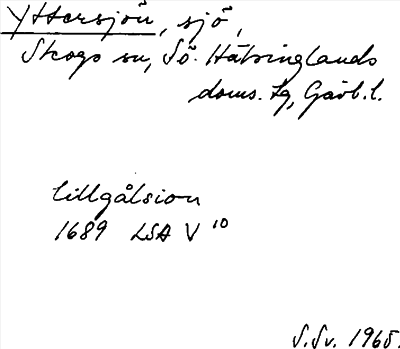 Yttersjön, sjö,
Skogs sn, Sö. Hälsinglands
doms. tg, Gävl. l.
lillgålsion
1689 LSA V 10
S.Sv. 1965.